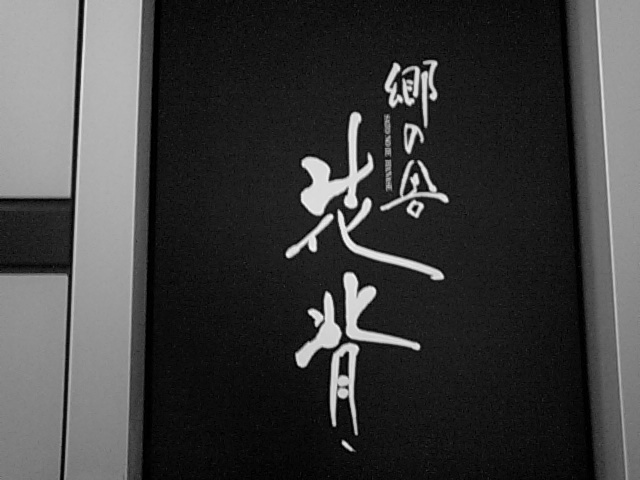 郷の舎
花背